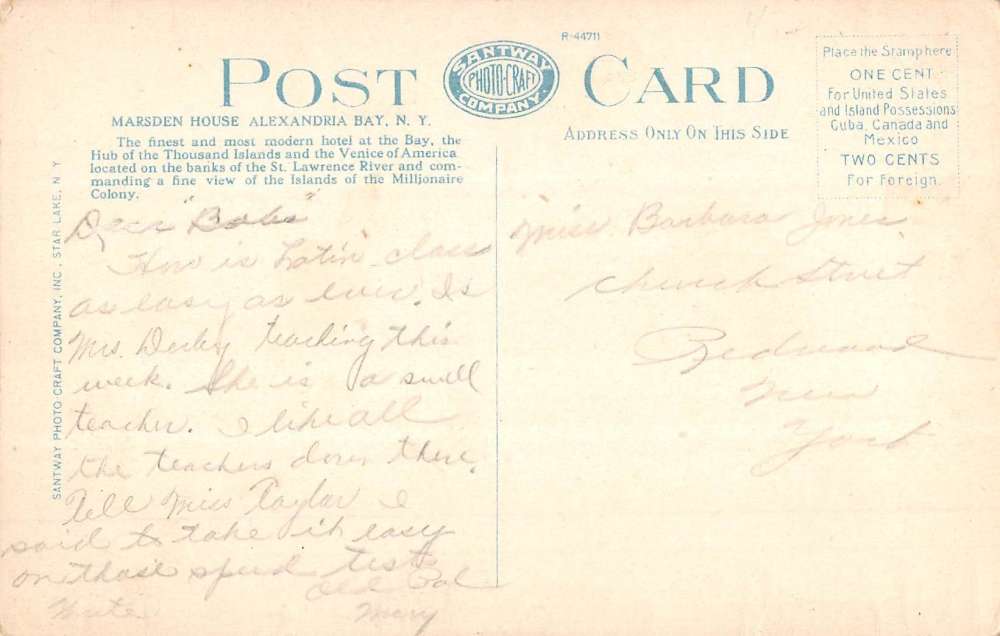 R-44711
POST CARD
SANTWAY
PHOTO-CRAFT
COMPANY.
MARSDEN HOUSE ALEXANDRIA BAY, N. Y.
The finest and most modern hotel at the Bay, the
Hub of the Thousand Islands and the Venice of America
located on the banks of the St. Lawrence River and com-
manding a fine view of the Islands of the Millionaire
Colony.
ADDRESS ONLY ON THIS SIDE
Place the Stamp here
ONE CENT
For United States
and Island Possessions
Cuba, Canada and
Mexico
TWO CENTS
For Foreign.
SANTWAY PHOTO-CRAFT COMPANY, INC., STAR LAKE, N Y
Dear "Bobs"
How is Latin class
as easy as ever. Is
Mrs. Derby teaching this
week. She is a swell
teacher. I like all
the teachers down there.
Tell Miss Taylor I
said to take it easy
on those speed tests
Old Pal
Write Mary
Miss Barbara Jones
Church Street
Redwood
New
York